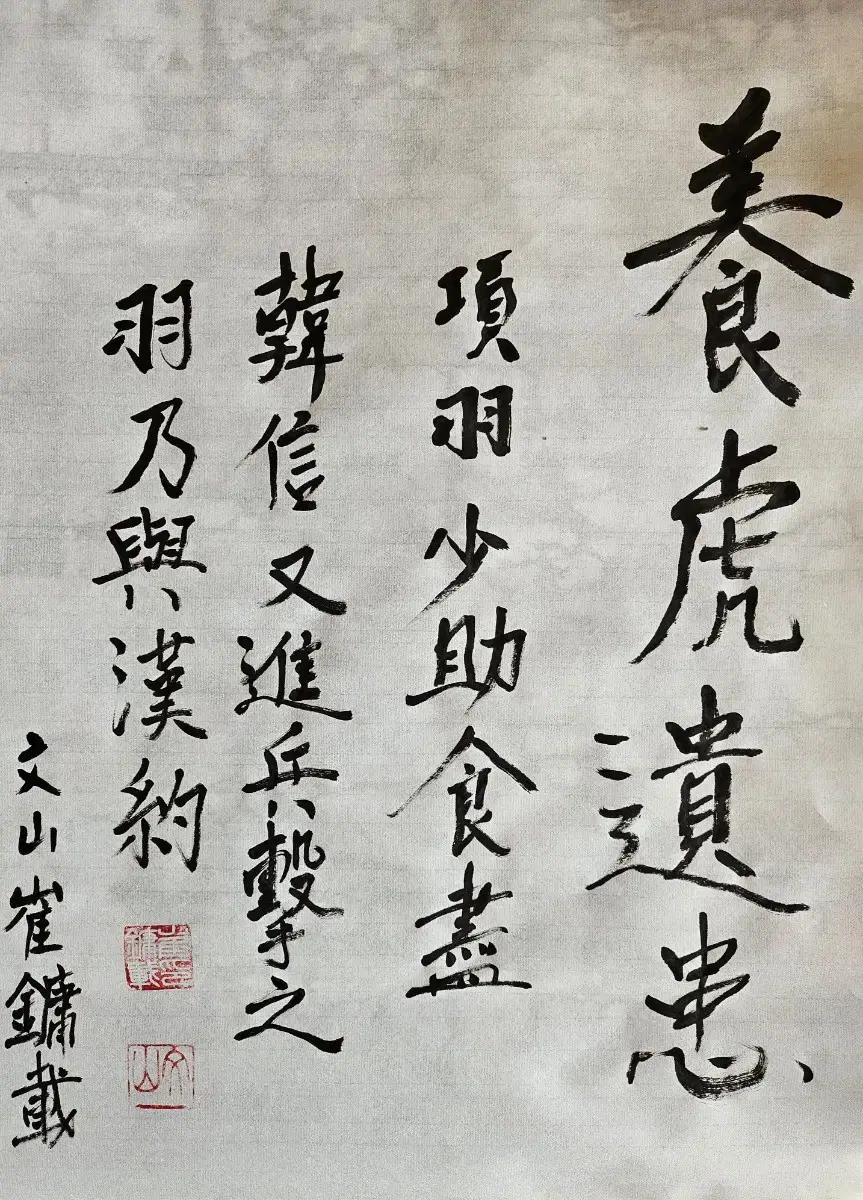 養虎遺患
項羽少助食盡
韓信又進兵擊之
羽乃與漢約
文山崔鏞載
崔印鏞載
文山